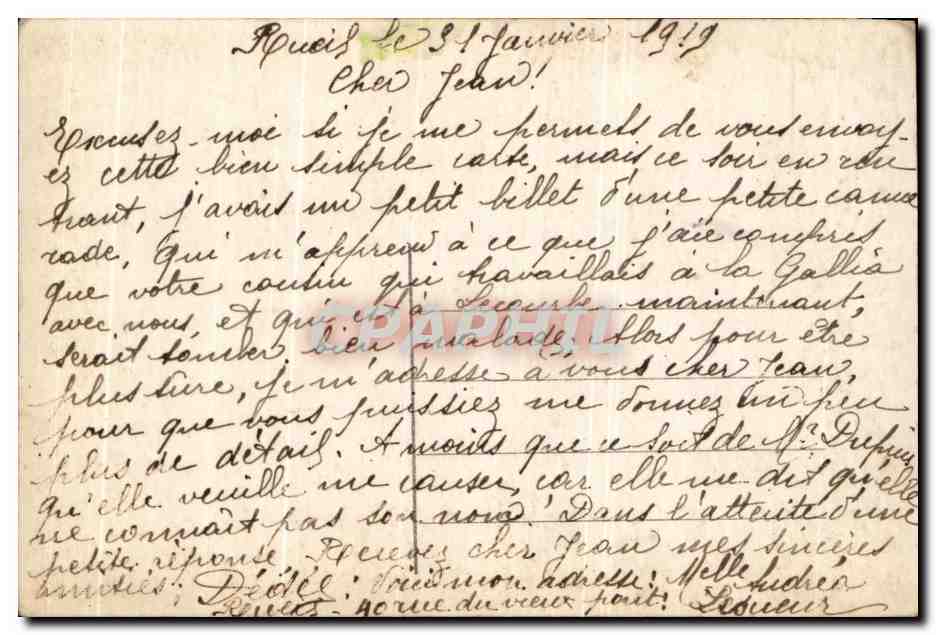 Rueil le 31 Janvier 1919
Cher Jean!
Excusez-moi si je me permets de vous envoy-
ez cette bien simple carte, mais ce soir en ren
trant, j'avais un petit billet d'une petite cama
rade, qui m'apprend à ce que j'aie compris
que votre cousin qui travaillais à la Gallia
avec nous, et qui est à Lecourbe maintenant,
serait tomber bien malade, Alors pour être
plus sure, je m'adresse à vous cher Jean,
pour que vous puissiez me donnez un peu
plus de détail. A moins que ce soit de Mr Dupuis
qu'elle veuille me causer, car elle me dit qu'elle
ne connaît pas son nom! Dans l'attente d'une
petite réponse Recevez cher Jean mes sincères
amitiés; Dédée: Voici mon adresse: Melle Andréa
40 rue du vieux pont: Lesueur
CPARHTI